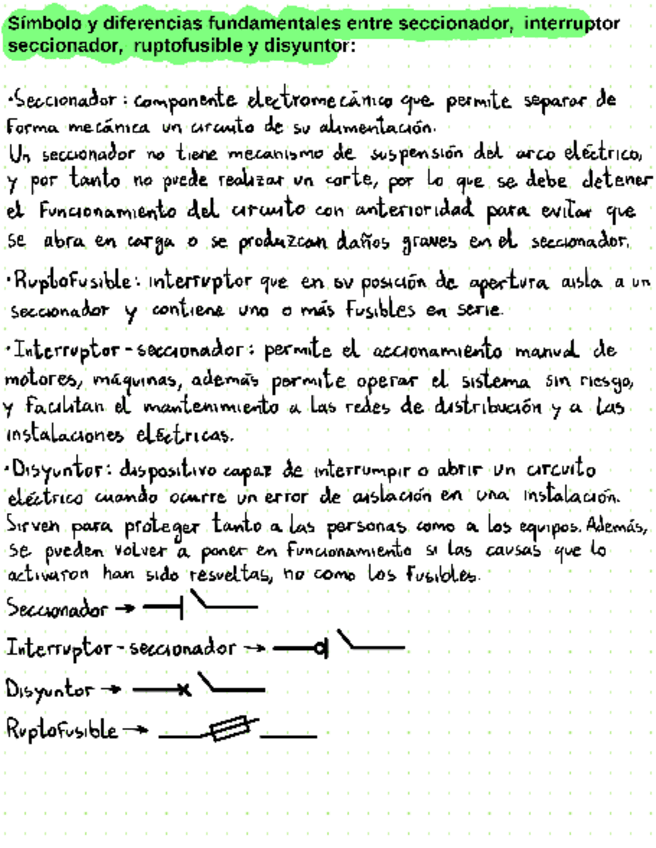 Símbolo y diferencias fundamentales entre seccionador, interruptor
seccionador, ruptofusible y disyuntor:
·Seccionador: componente electromecánico que permite separar de
forma mecánica un circuito de su alimentación.
Un seccionador no tiene mecanismo de suspensión del arco eléctrico,
y por tanto no puede realizar un corte, por lo que se debe detener
el funcionamiento del circuito con anterioridad para evitar que
se abra en carga o se produzcan daños graves en el seccionador.
·Ruptofusible: interruptor que en su posición de apertura aisla a un
seccionador y contiene uno o más fusibles en serie.
·Interruptor-seccionador: permite el accionamiento manual de
motores, máquinas, además permite operar el sistema sin riesgo,
y facilitan el mantenimiento a las redes de distribución y a las
instalaciones eléctricas.
·Disyuntor: dispositivo capaz de interrumpir o abrir un circuito
eléctrico cuando ocurre un error de aislación en una instalación.
Sirven para proteger tanto a las personas como a los equipos. Además,
se pueden volver a poner en funcionamiento si las causas que lo
activaron han sido resueltas, no como los fusibles.
Seccionador →
Interruptor-seccionador →
Disyuntor →
Ruptofusible →